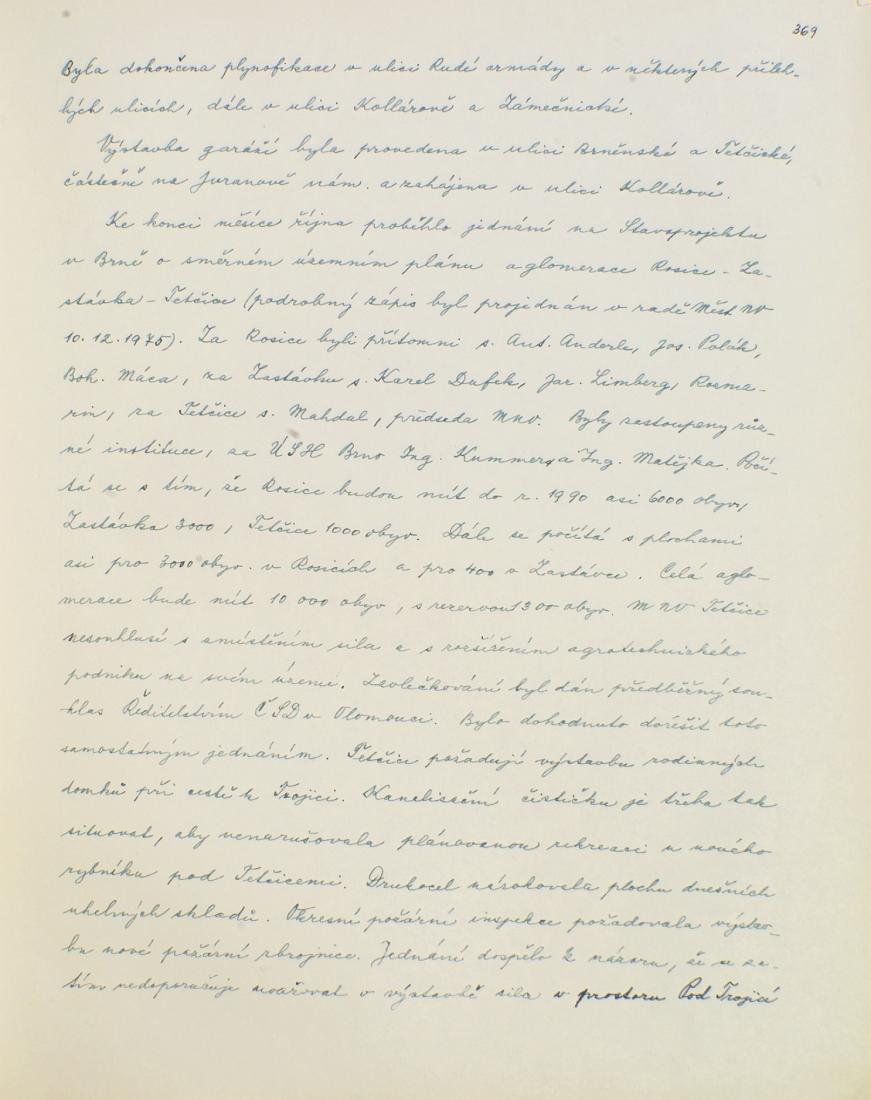 369
Byla dokončena plynofikace v ulici Rudé armády a v některých přileh-
lých ulicích, dále v ulici Kollárově a Zámečnické.
Výstavba garáží byla provedena v ulici Brněnské a Tetčické,
částečně na Juranově nám. a zahájena v ulici Kollárově.
Ke konci měsíce října proběhlo jednání na Stavoprojektu
v Brně o směrném územním plánu aglomerace Rosice - Za-
stávka - Tetčice (podrobný zápis byl projednán v radě Měst NV
10.12.1975). Za Rosice byli přítomni s. Ant. Anderle, Jos. Polák,
Boh. Máca, za Zastávku s. Karel Dufek, Jar. Limberg, Rosma-
rin, za Tetčice s. Mahdal, předseda MNV. Byly zastoupeny růz-
né instituce, za ÚSH Brno Ing. Kummer a Ing. Matějka. Počí-
tá se s tím, že Rosice budou mít do r. 1990 asi 6000 obyv.,
Zastávka 3000, Tetčice 1000 obyv. Dále se počítá s plochami
asi pro 3000 obyv. v Rosicích a pro 400 v Zastávce. Celá aglo-
merace bude mít 10 000 obyv., s rezervou 1300 obyv. MNV Tetčice
nesouhlasí s umístěním sila a s rozšířením agrotechnického
podniku na svém území. Zavlečkování byl dán předběžný sou-
hlas Ředitelstvím ČSD v Olomouci. Bylo dohodnuto dořešit toto
samostatným jednáním. Tetčice požadují výstavbu rodinných
domků při cestě k Trojici. Kanalisační čističku je třeba tak
situovat, aby nenarušovala plánovanou rekreaci u nového
rybníku pod Tetčicemi. Drukocel nárokovala plochu dnešních
uhelných skladů. Okresní požární inspekce požadovala výstav-
bu nové požární zbrojnice. Jednání dospělo k názoru, že se za-
tím nedoporučuje uvažovat o výstavbě sila v prostoru Pod Trojicí